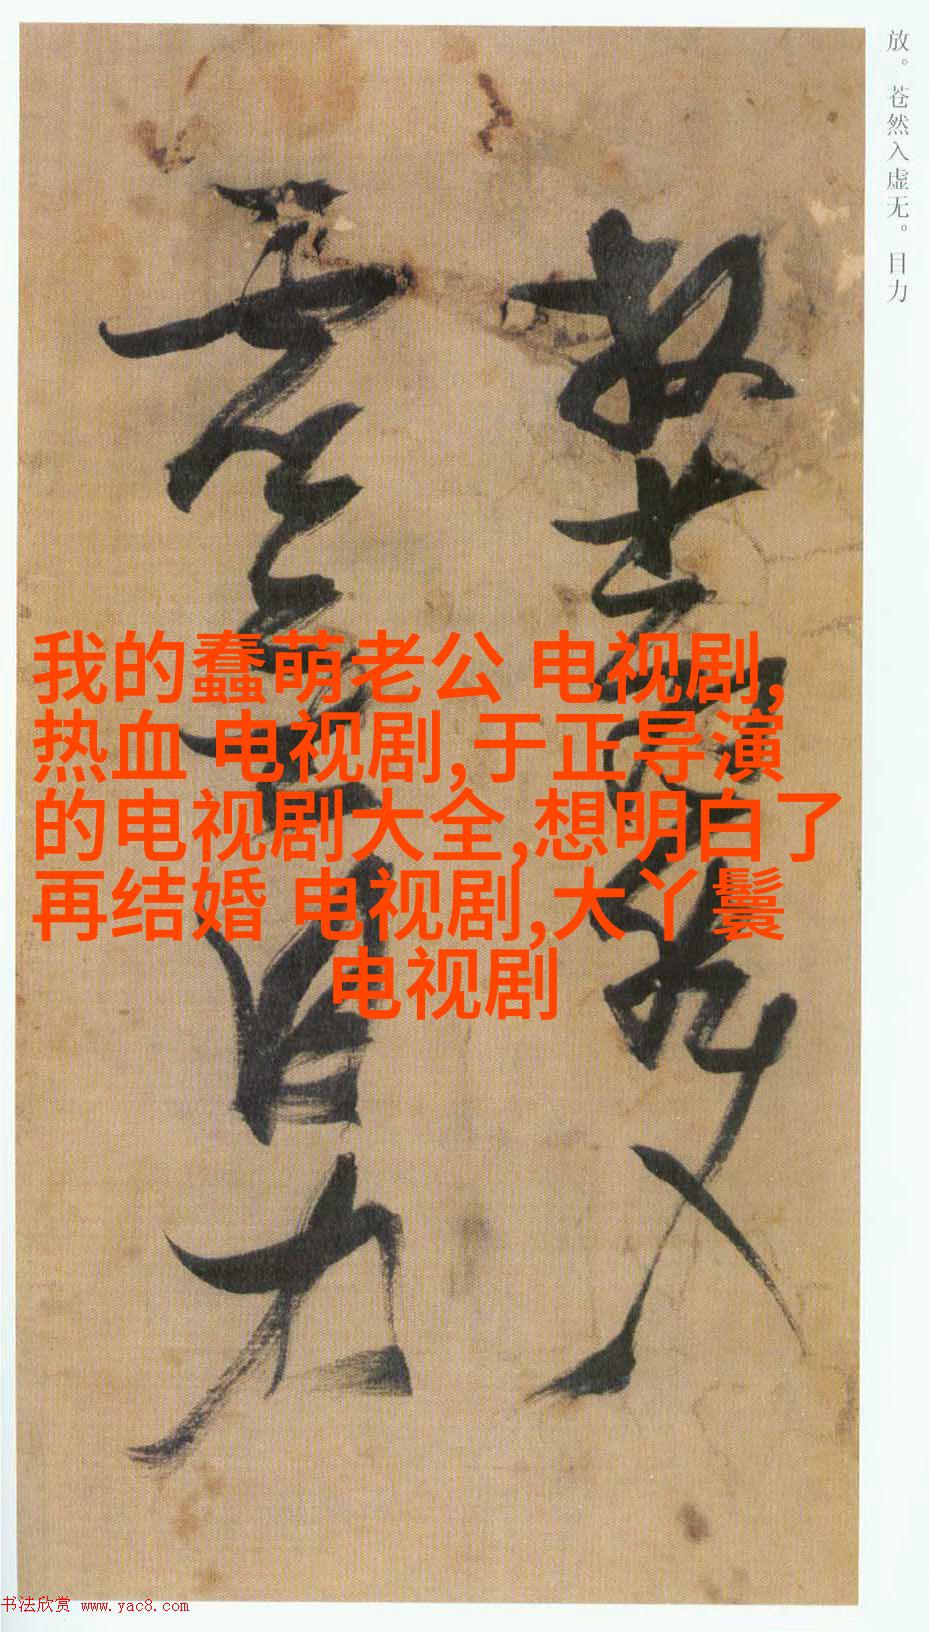 放。苍然入虚无。目力
放苍然入
虚无目力
我的蠢萌老公 电视剧,
热血 电视剧,于正导演
的电视剧大全,想明白了
再结婚 电视剧,大丫鬟
电视剧
书法欣赏 www.yac8.com